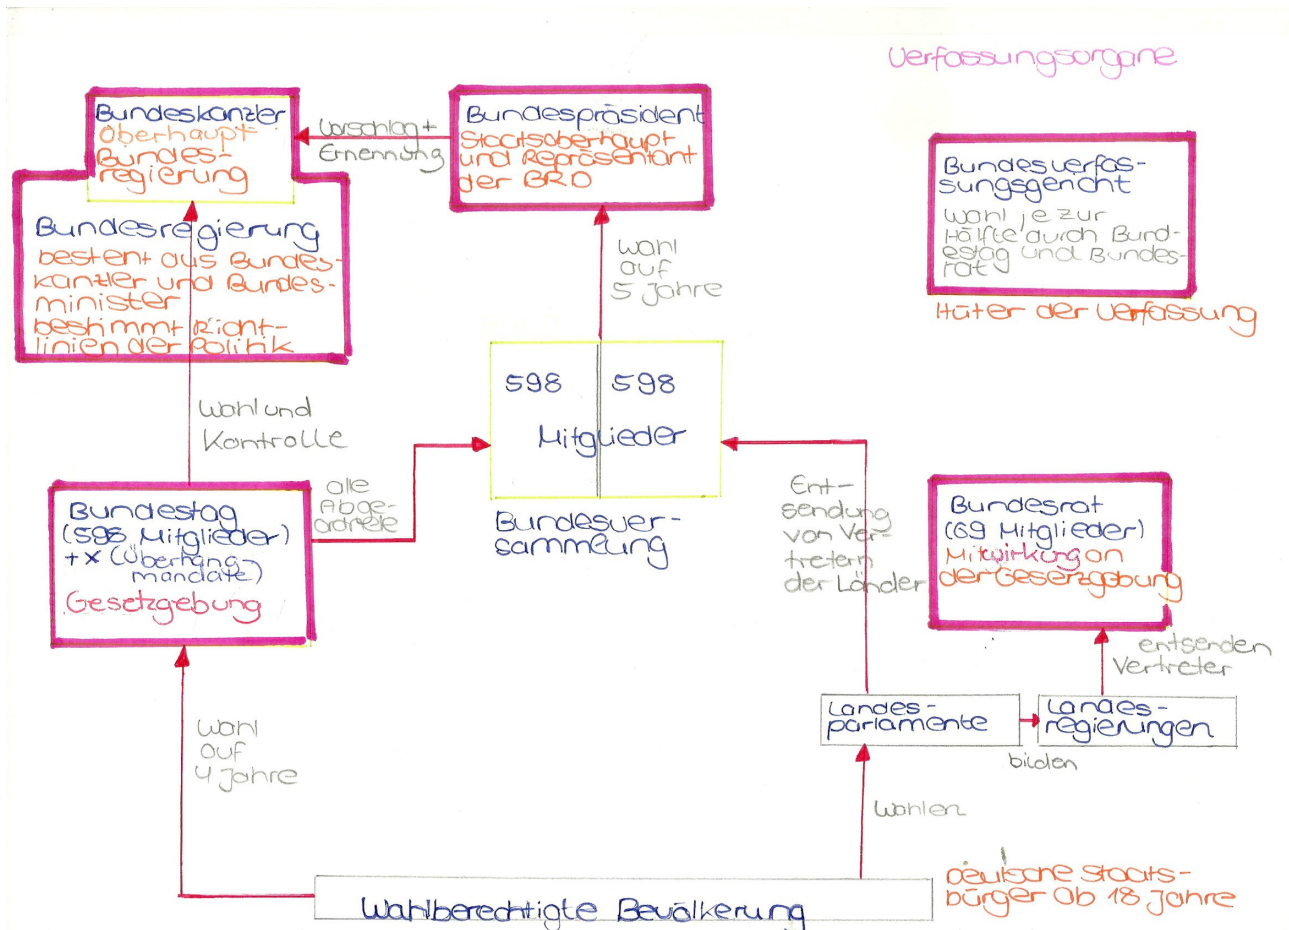 Verfassungsorgane
Bundeskanzler
Oberhaupt
Bundes-
regierung
Vorschlag +
Ernennung
Bundespräsident
Staatsoberhaupt
und Repräsentant
der BRD
Bundesverfas-
sungsgericht
Wahl je zur
Hälfte durch Bund-
estag und Bundes-
rat
Hüter der Verfassung
Bundesregierung
besteht aus Bundes-
kanzler und Bundes-
minister
bestimmt Richt-
linien der Politik
Wahl
auf
5 Jahre
598 598
Mitglieder
Bundesver-
sammlung
Wahl und
Kontrolle
alle
Abge-
ordnete
Bundestag
(598 Mitglieder)
+ X (Überhang
mandate)
Gesetzgebung
Ent-
sendung
von Ver-
tretern
der Länder
Bundesrat
(69 Mitglieder)
Mitwirkung an
der Gesetzgebung
entsenden
Vertreter
Landes-
parlamente
Landes-
regierungen
bilden
Wahl
auf
4 Jahre
Wahlen
Wahlberechtigte Bevölkerung
Deutsche Staats-
bürger ab 18 Jahre